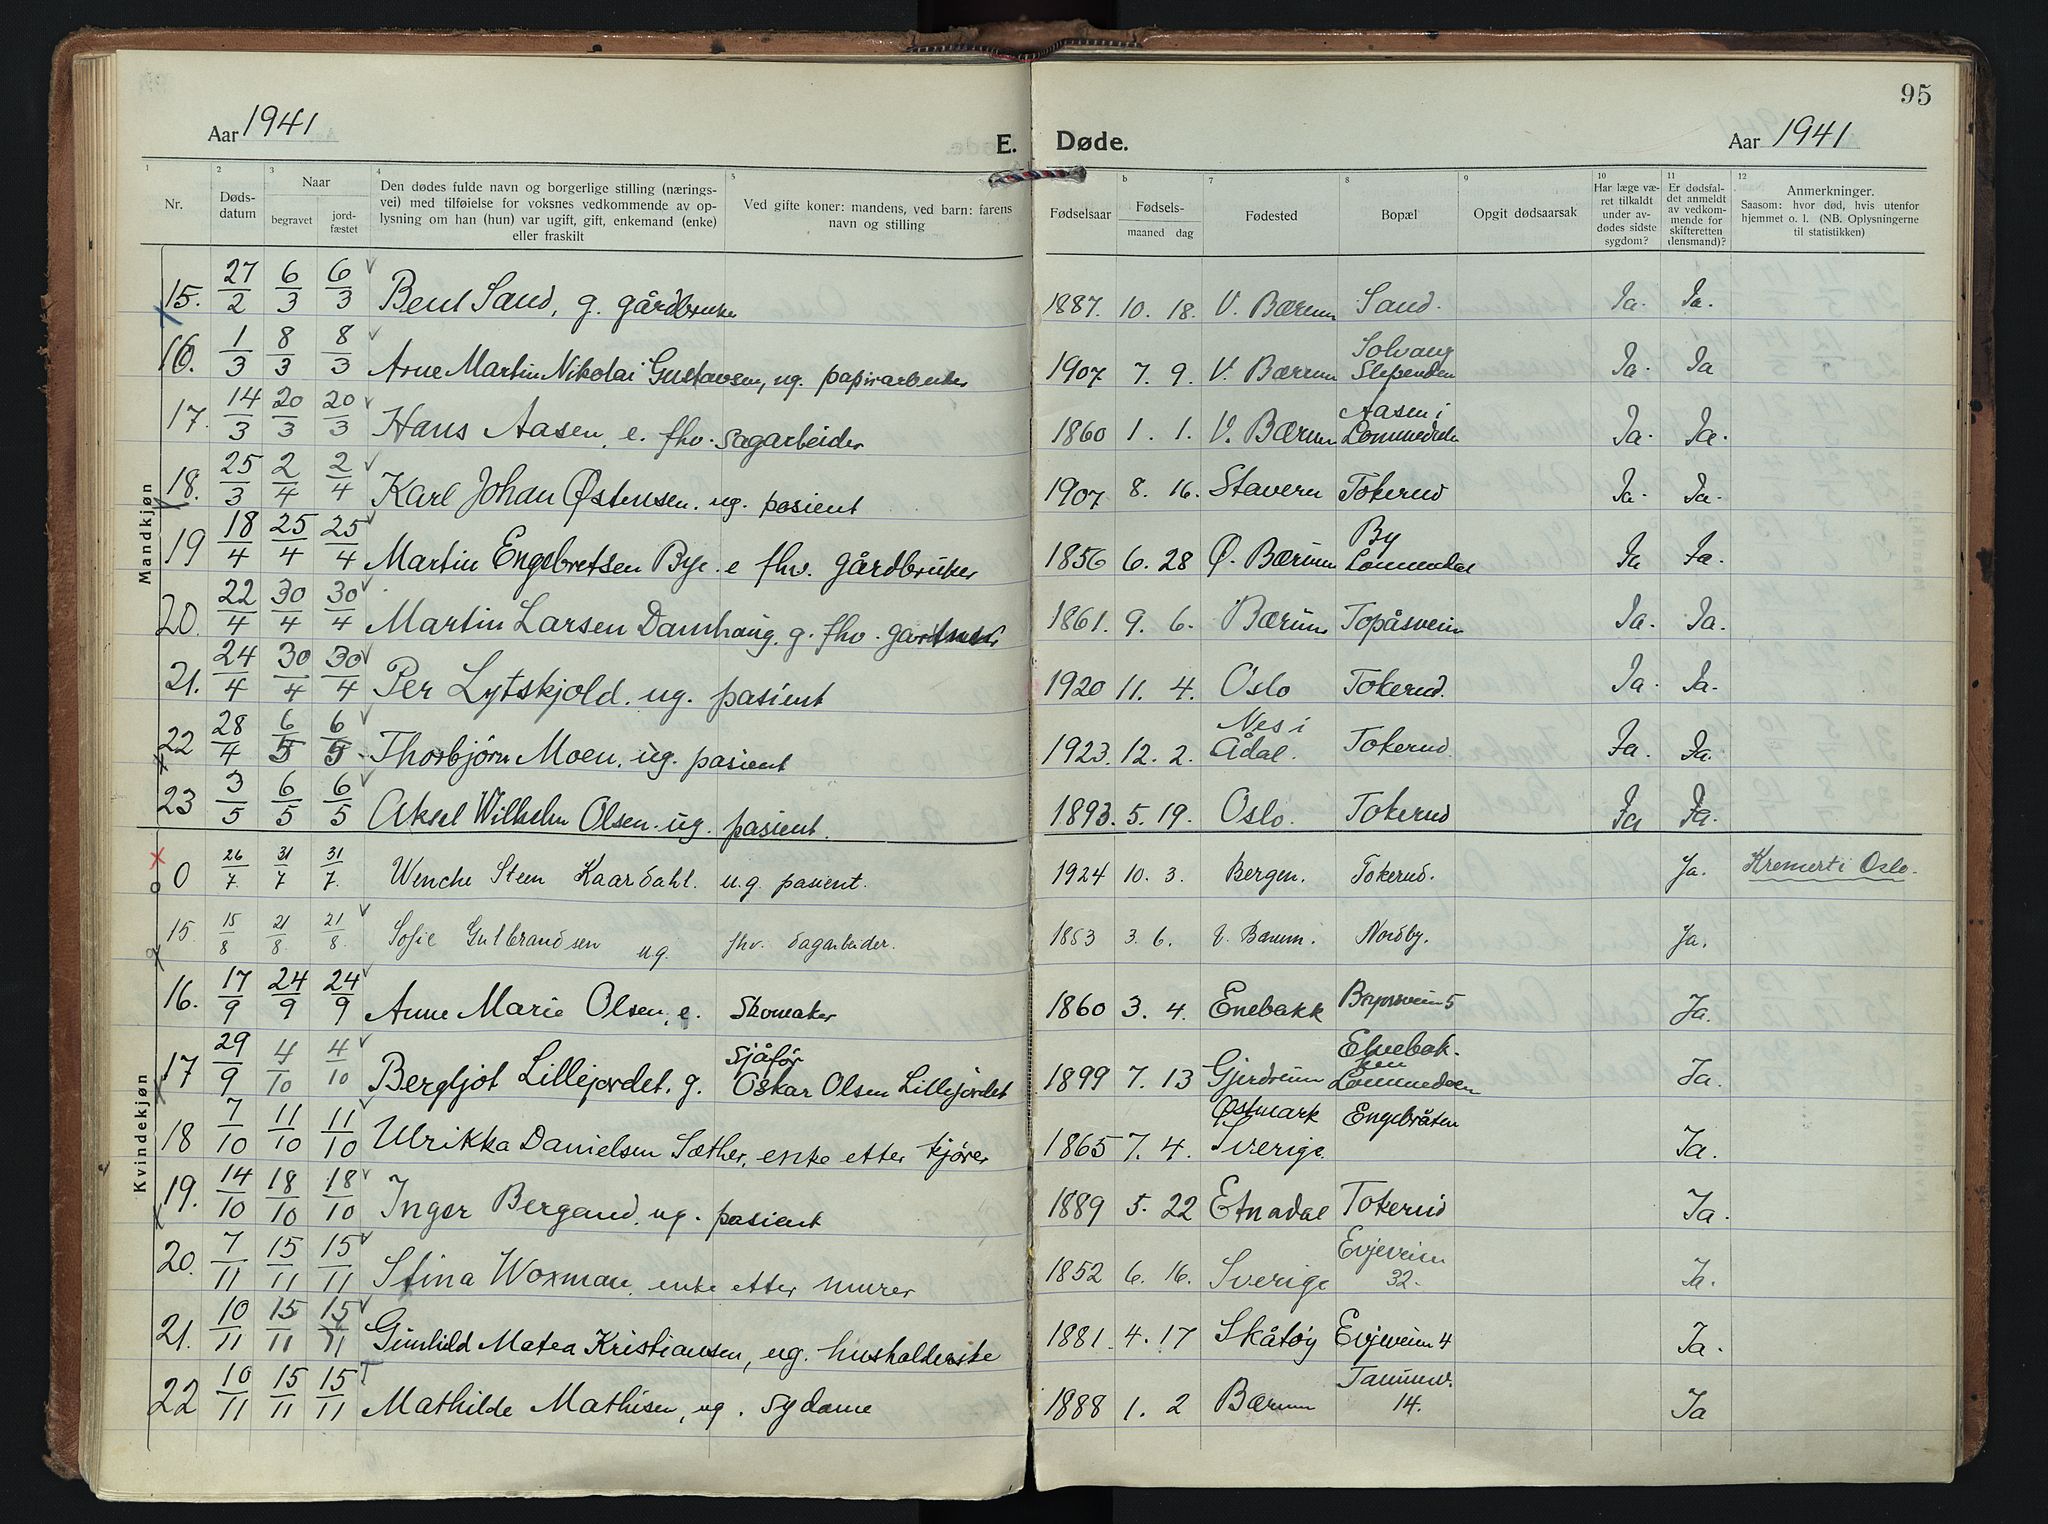 95
Aar 1941
E. Døde.
Aar 1941
1 Nr.
2 Døds-datum
3 Naar begravet jord-fæstet
4 Den dødes fulde navn og borgerlige stilling (nærings-
vei) med tilføielse for voksnes vedkommende av op-
lysning om han (hun) var ugift, gift, enkemand (enke)
eller fraskilt
5 Ved gifte koner: mandens, ved barn: farens
navn og stilling
Fødselsaar
6 Fødsels-
maaned dag
7 Fødested
8 Bopæl
9 Opgit dødsaarsak
10 Har læge væ-
ret tilkaldt
under av-
dødes sidste
sygdom?
11 Er dødsfal-
det anmeldt
av vedkom-
mende for
skifteretten
(lensmand)?
12 Anmerkninger.
Saasom: hvor død, hvis utenfor
hjemmet o. l. (NB. Oplysningerne
til statistikken)
Mandkjøn
15. 27/2 6/3 6/3 Bent Sand, g. gårdbruker 1887. 10. 18. V. Bærum Sand. Ja. Ja.
16. 1/3 8/3 8/3 Arne Martin Nikolai Gustavsen, ug. papirarbeider 1907 7. 9. V. Bærum Solvang Slependen Ja. Ja
17. 14/3 20/3 20/3 Hans Aasen, e. fhv. sagarbeider 1860 1. 1. V. Bærum Aasen i Lommedalen Ja. Ja.
18. 25/3 2/4 2/4 Karl Johan Østensen. ug. pasient 1907 8. 16. Stavern Tokerud Ja. Ja.
19 18/4 25/4 25/4 Martin Engebretsen Bye. e fhv. gårdbruker 1856 6. 28 Ø. Bærum By Lommedal Ja Ja.
20. 22/4 30/4 30/4 Martin Larsen Damhaug. g. fhv. gartner 1861. 9. 6. Bærum Topåsveien Ja. Ja.
21. 24/4 30/4 30/4 Per Lytskjold. ug. pasient 1920 11. 4. Oslo Tokerud. Ja. Ja.
22 28/4 6/5 6/5 Thorbjørn Moen. ug. pasient 1923. 12. 2. Nes i Ådal. Tokerud Ja. Ja.
23 3/5 6/5 6/5 Aksel Wilhelm Olsen. ug. pasient. 1893. 5. 19. Oslo. Tokerud Ja Ja.
Kvindekjøn
0 26/7. 31/7 31/7. Wenche Steen Kaardahl. u.g. pasient. 1924 10. 3. Bergen. Tokerud. Ja. Kremert i Oslo.
15. 15/8 21/8. 21/8. Sofie Gulbrandsen ug. fhv. dagarbeider. 1853 3. 6. V. Bærum. Nordby. Ja.
16. 17/9 24/9 24/9 Anne Marie Olsen, e. Skomaker 1860 3. 4. Enebakk 5 Ja.
17 29/9 4/10 4/10 Bergljot Lillejordet. g. Sjåfør Oskar Olsen Lillejordet 1899 7. 13 Gjerdrum Elvebakken Lommedalen Ja.
18 7/10 11/10 11/10 Ulrikka Danielsen Sæther, enke etter kjører 1865 7. 4. Østmark Sverige. Engebråten Ja.
19. 14/10 18/10 18/10 Inger Bergsund. ug. pasient 1889 5. 22 Etnedal Tokerud Ja.
20. 7/11 15/11 15/11 Stina Woxman, enke etter murer 1852 6. 16. Sverige Evjeveien 32. Ja.
21. 10/11 15/11 15/11 Gunhild Matea Kristiansen, ug. husholderske 1881. 4. 17 Skåtøy Evjeveien 4 Ja.
22 10/11 15/11 15/11 Mathilde Mathisen, ug. sydame 1888 1. 2 Bærum Tanumv. 14. Ja